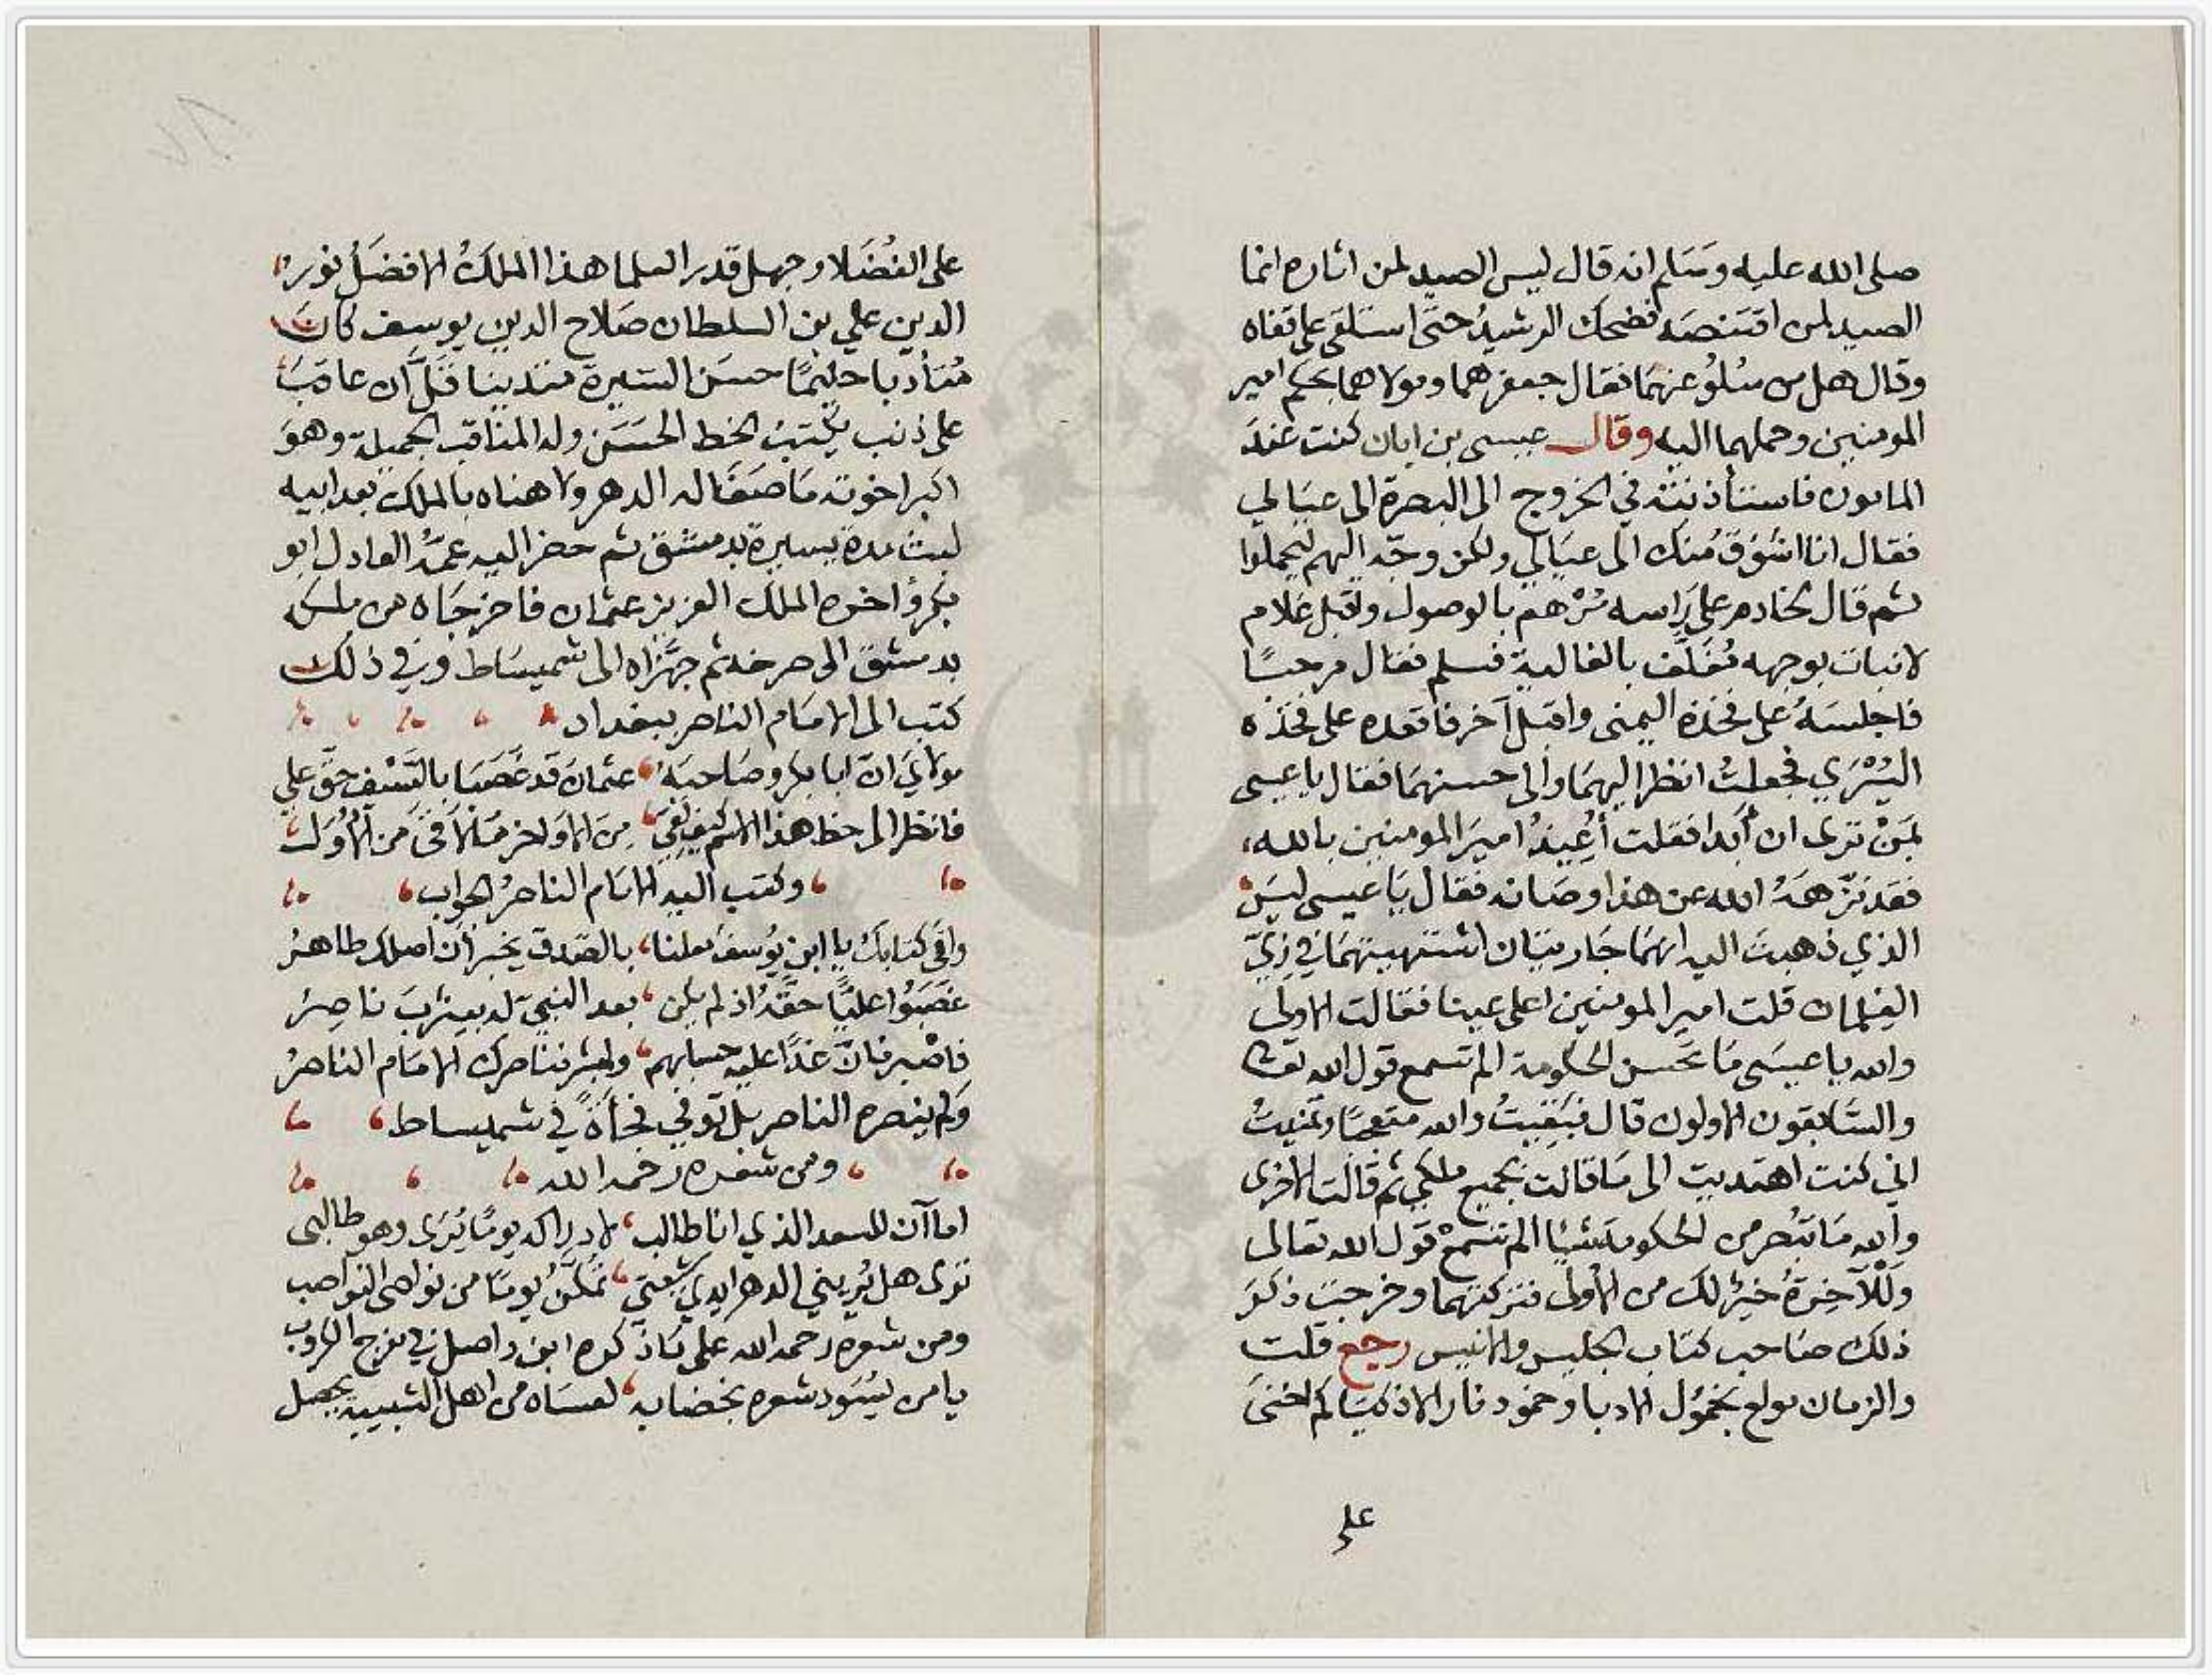 صلى الله عليه وسَلم انه قال ليس الصيد لمن اثاره انما
الصيد لمن اقتنصَه فضحك الرشيدُ حتَّى استلقى على قفاه
وقال هل من سُلُو عنهمَا فقال جعفر هما ومولاهما بحكم امير
المومنين وحملهما اليه وقال عيسى بن ابان كنت عندَ
المامون فاستأذنته في الخروج الى البصرة الى عيَالي
فقال انا اشوَقُ منك الى عيَالي ولكن وجّه اليهم ليحملوا
ثم قال لخادم على رَاسه مُرْهم بالوصول واقبل غلام
لا نبات بوجهه مُغَلَّف بالغالية فسلم فقال مرحبًا
فاجلسَهُ على فخذه اليمنى واقبل آخر فاقعده على فخذه
اليُسْرَي فجعلتُ انظر اليهمَا والى حسنهمَا فقال يا عيسى
لمَنْ ترى ان أبدا فقلت أُعِيذُ اميرَ المومنين بالله
فقد نزّهَهُ الله عن هذا وصَانه فقال يَا عيسى ليسَ
الذي ذهبتَ اليه انهمَا جَاريتَان اشتهيتهمَا في زِيّ
الغِلمان قلت امير المومنين اعلى عينا فقالت الاولى
والله يا عيسَى مَا تُحسن الحكومة الم تسمع قول الله تعالى
والسَّابقون الاولون قال فبَقيتُ والله متعجبًا وتمنيتُ
اني كنت اهتديت الى مَا قالت بجميع ملكي ثم قالت الاخرى
وَالله مَا تبُصر من الحكومة شيئا الم تسْمعْ قول الله تعالى
وَلَلْآخِرَةُ خيرٌ لكَ من الأولى فتركتهمَا وخرجت ذكرَ
ذلك صَاحب كتاب الجليس والانيس رجع قلت
والزمان مولع بخُمُول الادبا وخمُود نار الاذكيَا كم اخنىَ
على
على الفُضَلا وجهل قدر العلما هذا الملكُ الافضَلُ نور
الدين علي بن السلطان صَلاح الدين يوسف كانَ
مُتأدبا حليمًا حسَن السّيرة متدينا قَلَّ ان عاقبَ
على ذنب يكتبُ الخط الحسَن وله المناقب الجميلة وهوَ
اكبر اخوته مَا صَفَا له الدهر ولا هناه بالملك بعد ابيه
لبث مدة يسيرة بدمشق ثم حضر اليه عمَّهُ العادل ابو
بكر وَاخوه الملك العزيز عثمان فاخرجَاه من ملكه
بدمشق الى صرخد ثم جهّزاه الى شميسَاط وفي ذلك
كتب الى الامَام الناصر ببغداد
مولايَ ان ابا بكر وصَاحبَهُ عثمانَ قد غَصَبَا بالسّيْفِ حقّ علي
فانظر الى حظ هذا الاسم كيف لقيَ مِنَ الاوَاخر مَا لاقى من الأُوَلِ
وكتب اليه الامَام الناصرُ الجواب
وافى كتابكَ يا ابن يُوسفَ معلنا بالصّدق يخبر أن اصلك طاهرُ
غصَبُوا عليًّا حقّهُ اذ لم يكن بعد النبيّ له بيثربَ ناصِرُ
فاصْبر فانّ غدًا عليه حسابهم وابشر فناصرك الامَام الناصرُ
وَلم ينصره الناصر بل توفي فجأةً في شميساط
ومن شعره رحمه الله
اما آن للسعد الذي انا طالب لادراكه يومًا يُرَى وهو طالبى
ترى هل يُريني الدهر ايدي شيعتي تمكّنُ يومًا من نواصى النواصب
ومن شعره رحمه الله على مَا ذكره ابن واصل في مفرج الكروب
يا من يُسَود شعره بخضابه لعسَاه من اهل الشبيبة يحصل